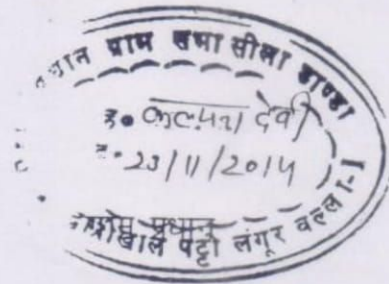 प्रधान ग्राम सभा सीला डाण्डा
ह० कल्पना देवी
23/11/2014
ग्राम प्रधान
पट्टी लंगूर वल्ला-1